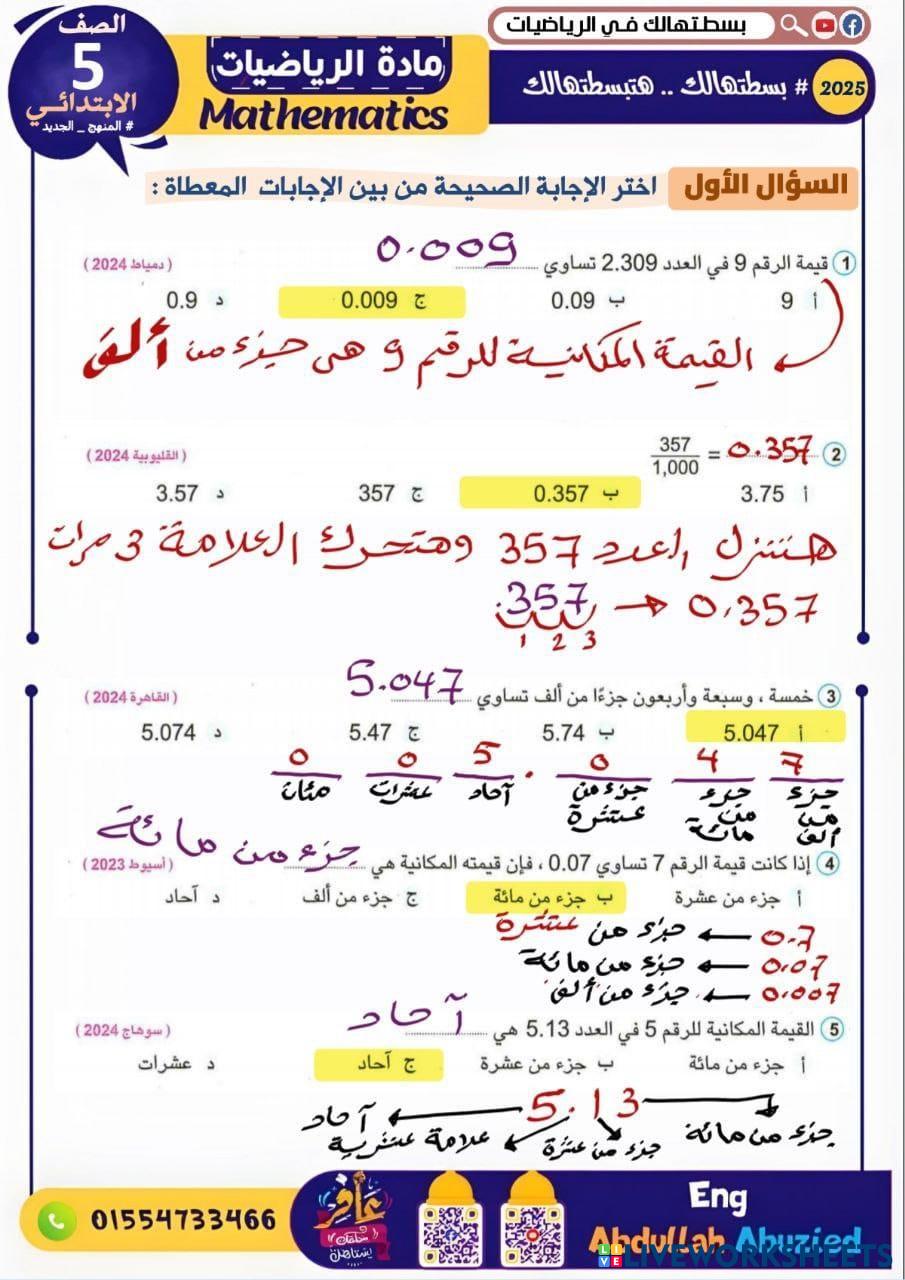 بسطتهالك في الرياضيات
الصف
5
الابتدائي
# المنهج _ الجديد
مادة الرياضيات
Mathematics
# بسطتهالك .. هتبسطتهالك
2025
السؤال الأول اختر الإجابة الصحيحة من بين الإجابات المعطاة :
1 قيمة الرقم 9 في العدد 2.309 تساوي 0.009 ( دمياط 2024 )
أ 9 ب 0.09 ج 0.009 د 0.9
القيمة المكانية للرقم 9 هى جزء من ألف
2 357/1,000 = 0.357 ( القليوبية 2024 )
أ 3.75 ب 0.357 ج 357 د 3.57
هننزل العدد 357 وهنحرك العلامة 3 مرات
.357 → 0.357
1 2 3
3 خمسة ، وسبعة وأربعون جزءًا من ألف تساوي 5.047 ( القاهرة 2024 )
أ 5.047 ب 5.74 ج 5.47 د 5.074
0 0 5 . 0 4 7
جزء من ألف جزء من مائة جزء من عشرة آحاد عشرات مئات
4 إذا كانت قيمة الرقم 7 تساوي 0.07 ، فإن قيمته المكانية هي جزء من مائة ( أسيوط 2023 )
أ جزء من عشرة ب جزء من مائة ج جزء من ألف د آحاد
0.7 ← جزء من عشرة
0.07 ← جزء من مائة
0.007 ← جزء من ألف
5 القيمة المكانية للرقم 5 في العدد 5.13 هي آحاد ( سوهاج 2024 )
أ جزء من مائة ب جزء من عشرة ج آحاد د عشرات
5.13
جزء من مائة جزء من عشرة علامة عشرية آحاد
01554733466
عافر
Eng
Abdullah Abuzied
LIVEWORKSHEETS